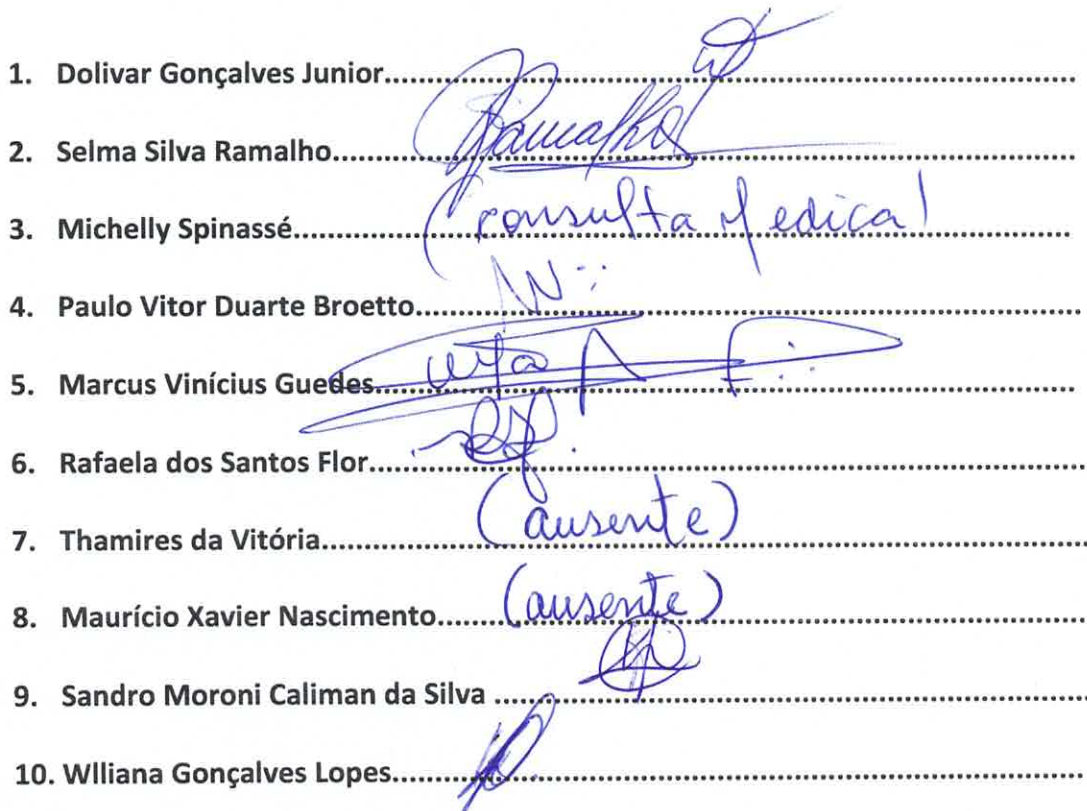 1. Dolivar Gonçalves Junior..........
2. Selma Silva Ramalho.......... Ramalho
3. Michelly Spinassé.......... (consulta Medica)
4. Paulo Vitor Duarte Broetto..........
5. Marcus Vinícius Guedes..........
6. Rafaela dos Santos Flor..........
7. Thamires da Vitória.......... (ausente)
8. Maurício Xavier Nascimento.......... (ausente)
9. Sandro Moroni Caliman da Silva ..........
10. Wlliana Gonçalves Lopes..........